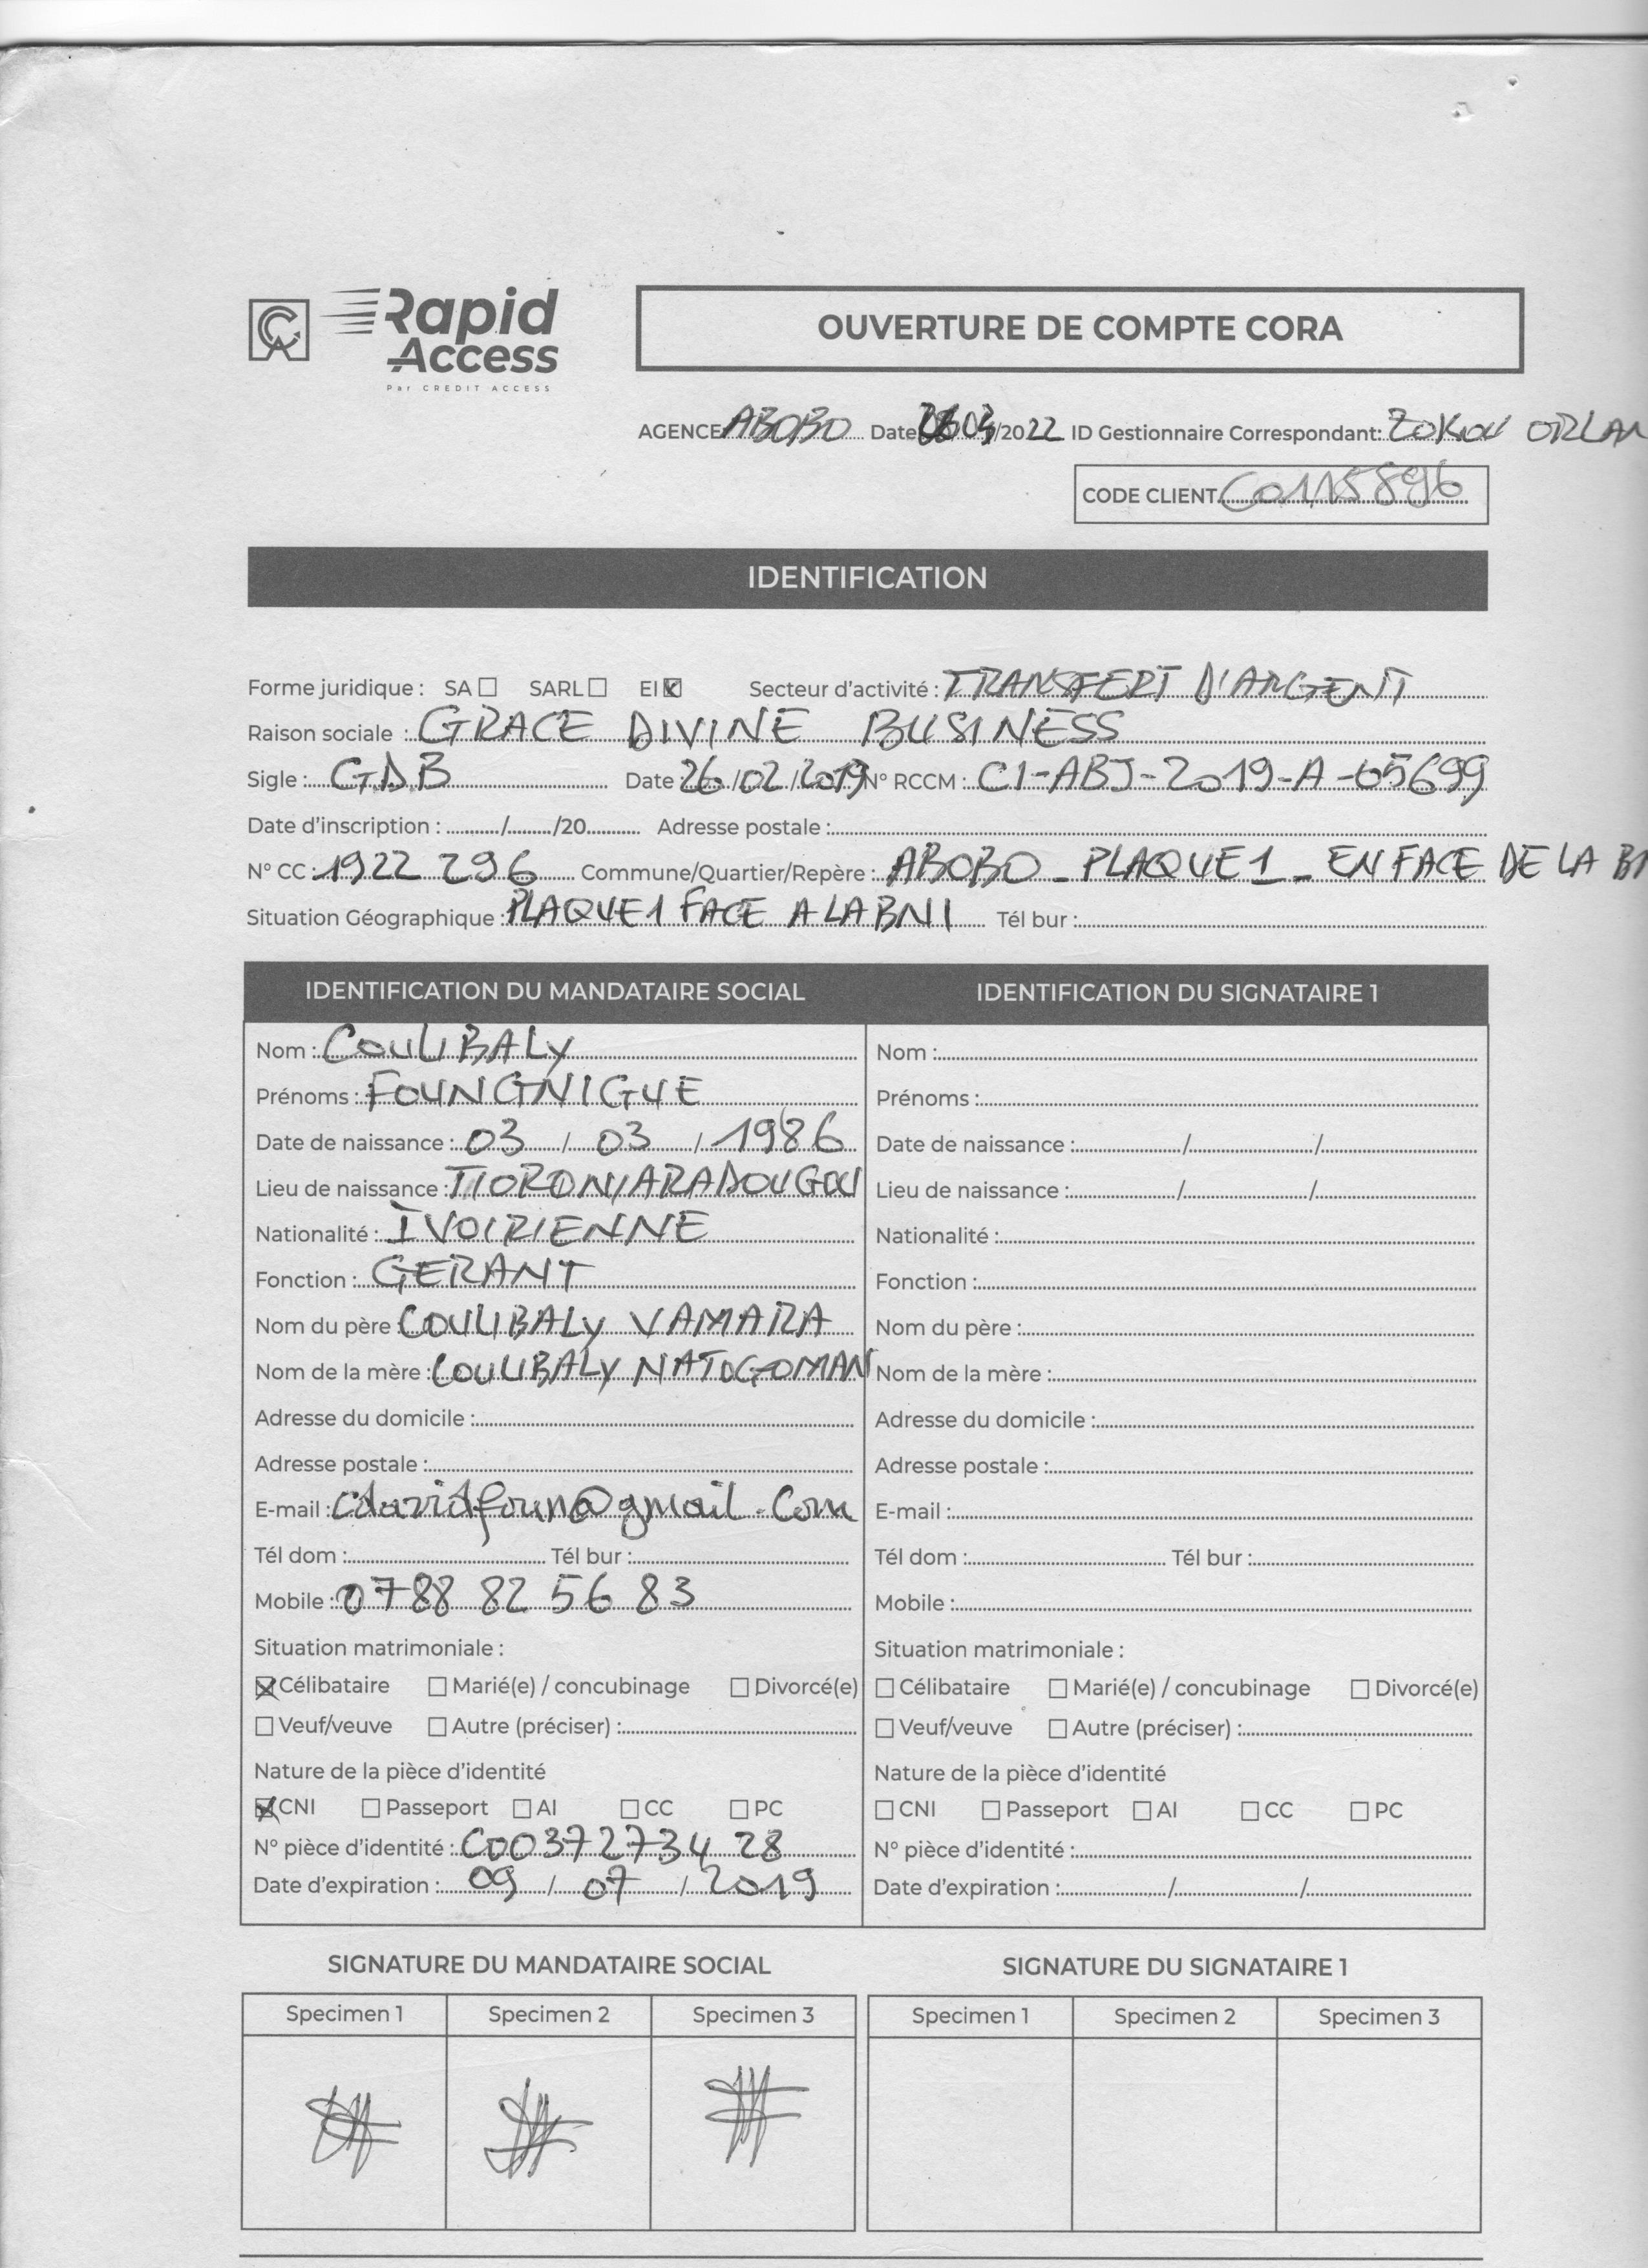 CA Rapid Access
Par CREDIT ACCESS
OUVERTURE DE COMPTE CORA
AGENCE ABOBO Date /2022 ID Gestionnaire Correspondant: ZOKOU ORLAN
CODE CLIENT C0115896
IDENTIFICATION
Forme juridique : SA ☐ SARL ☐ EI ☒ Secteur d'activité : TRANSFERT D'ARGENT
Raison sociale : GRACE DIVINE BUSINESS
Sigle : GDB Date : 26/02/2019 N° RCCM : CI-ABJ-2019-A-05699
Date d'inscription : ........../........./20........... Adresse postale :
N° CC : 1922 296 Commune/Quartier/Repère : ABOBO - PLAQUE 1 - EN FACE DE LA BN
Situation Géographique : PLAQUE 1 FACE A LA BNI Tél bur :
IDENTIFICATION DU MANDATAIRE SOCIAL
Nom : COULIBALY
Prénoms : FOUNGNIGUE
Date de naissance : 03 / 03 / 1986
Lieu de naissance : TIORONIARADOUGOU
Nationalité : IVOIRIENNE
Fonction : GERANT
Nom du père : COULIBALY VAMARA
Nom de la mère : COULIBALY NATOGOMAN
Adresse du domicile :
Adresse postale :
E-mail : cdavidfoun@gmail.com
Tél dom : Tél bur :
Mobile : 07 88 82 56 83
Situation matrimoniale :
☒ Célibataire ☐ Marié(e) / concubinage ☐ Divorcé(e)
☐ Veuf/veuve ☐ Autre (préciser) :
Nature de la pièce d'identité
☒ CNI ☐ Passeport ☐ AI ☐ CC ☐ PC
N° pièce d'identité : C00372734 28
Date d'expiration : 09 / 07 / 2019
IDENTIFICATION DU SIGNATAIRE 1
Nom :
Prénoms :
Date de naissance : / /
Lieu de naissance : / /
Nationalité :
Fonction :
Nom du père :
Nom de la mère :
Adresse du domicile :
Adresse postale :
E-mail :
Tél dom : Tél bur :
Mobile :
Situation matrimoniale :
☐ Célibataire ☐ Marié(e) / concubinage ☐ Divorcé(e)
☐ Veuf/veuve ☐ Autre (préciser) :
Nature de la pièce d'identité
☐ CNI ☐ Passeport ☐ AI ☐ CC ☐ PC
N° pièce d'identité :
Date d'expiration : / /
SIGNATURE DU MANDATAIRE SOCIAL
Specimen 1 Specimen 2 Specimen 3
SIGNATURE DU SIGNATAIRE 1
Specimen 1 Specimen 2 Specimen 3